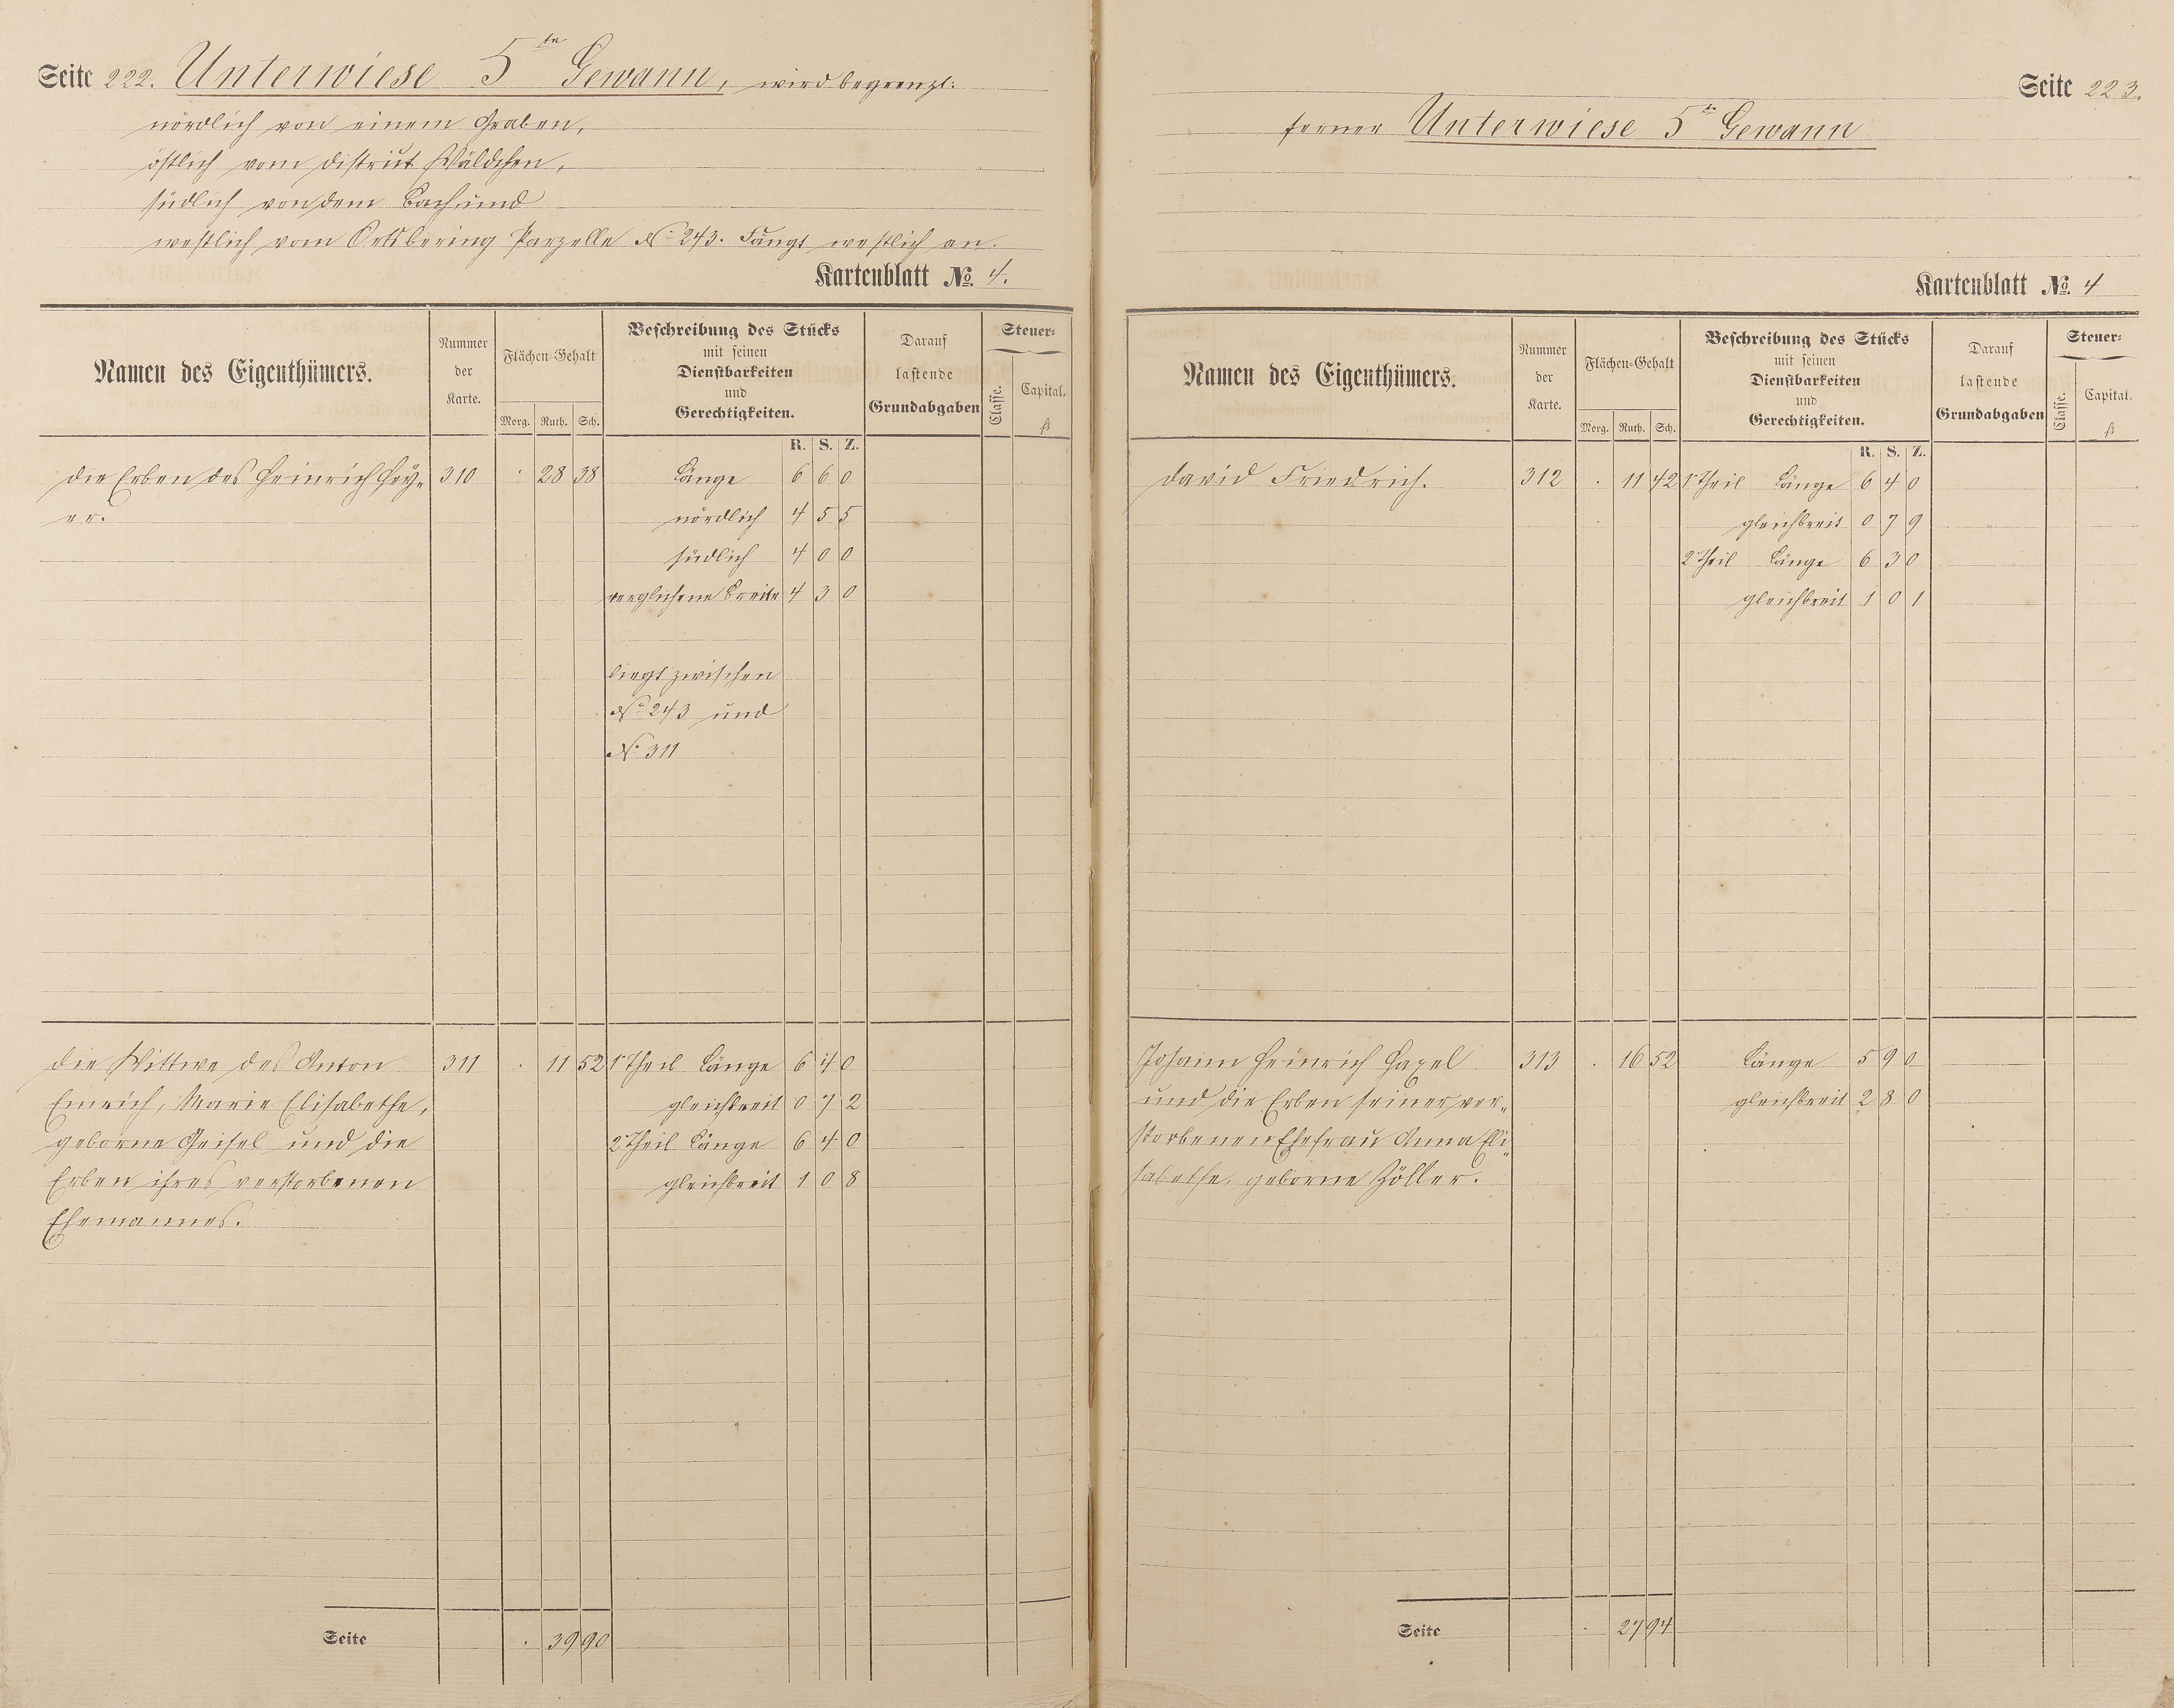 Seite 222. Unterwiese 5te Gewann, wird begrenzt:
nördlich von einem Graben,
östlich vom District Wäldchen,
südlich von dem Bach und
westlich vom Ortsbering Parzelle No 243. Fängt westlich an.
Kartenblatt No. 4.
Namen des Eigenthümers.
Nummer der Karte.
Flächen-Gehalt
Morg. Ruth. Sch.
Beschreibung des Stücks
mit seinen
Dienstbarkeiten
und
Gerechtigkeiten.
R. S. Z.
Darauf
lastende
Grundabgaben
Steuer-
Classe. Capital.
fl
die Erben des Heinrich Hey- 310 . 28 38 Länge 6 6 0
er. nördlich 4 5 5
südlich 4 0 0
verglichene Breite 4 3 0
liegt zwischen
No 243 und
No 311
die Wittwe des Anton 311 . 11 52 1r Theil Länge 6 4 0
Emrich, Marie Elisabethe, gleichbreit 0 7 2
geborne Geisel und die 2r Theil Länge 6 4 0
Erben ihres verstorbenen gleichbreit 1 0 8
Ehemannes.
Seite . 39 90
Seite 223.
ferner Unterwiese 5te Gewann
Kartenblatt No. 4
Namen des Eigenthümers.
Nummer der Karte.
Flächen-Gehalt
Morg. Ruth. Sch.
Beschreibung des Stücks
mit seinen
Dienstbarkeiten
und
Gerechtigkeiten.
R. S. Z.
Darauf
lastende
Grundabgaben
Steuer-
Classe. Capital.
fl
David Friedrich. 312 . 11 42 1r Theil Länge 6 4 0
gleichbreit 0 7 9
2r Theil Länge 6 3 0
gleichbreit 1 0 1
Johann Heinrich Haxel 313 . 16 52 Länge 5 9 0
und die Erben seiner ver- gleichbreit 2 8 0
storbenen Ehefrau Anna Eli-
sabethe, geborne Zöller.
Seite . 27 94